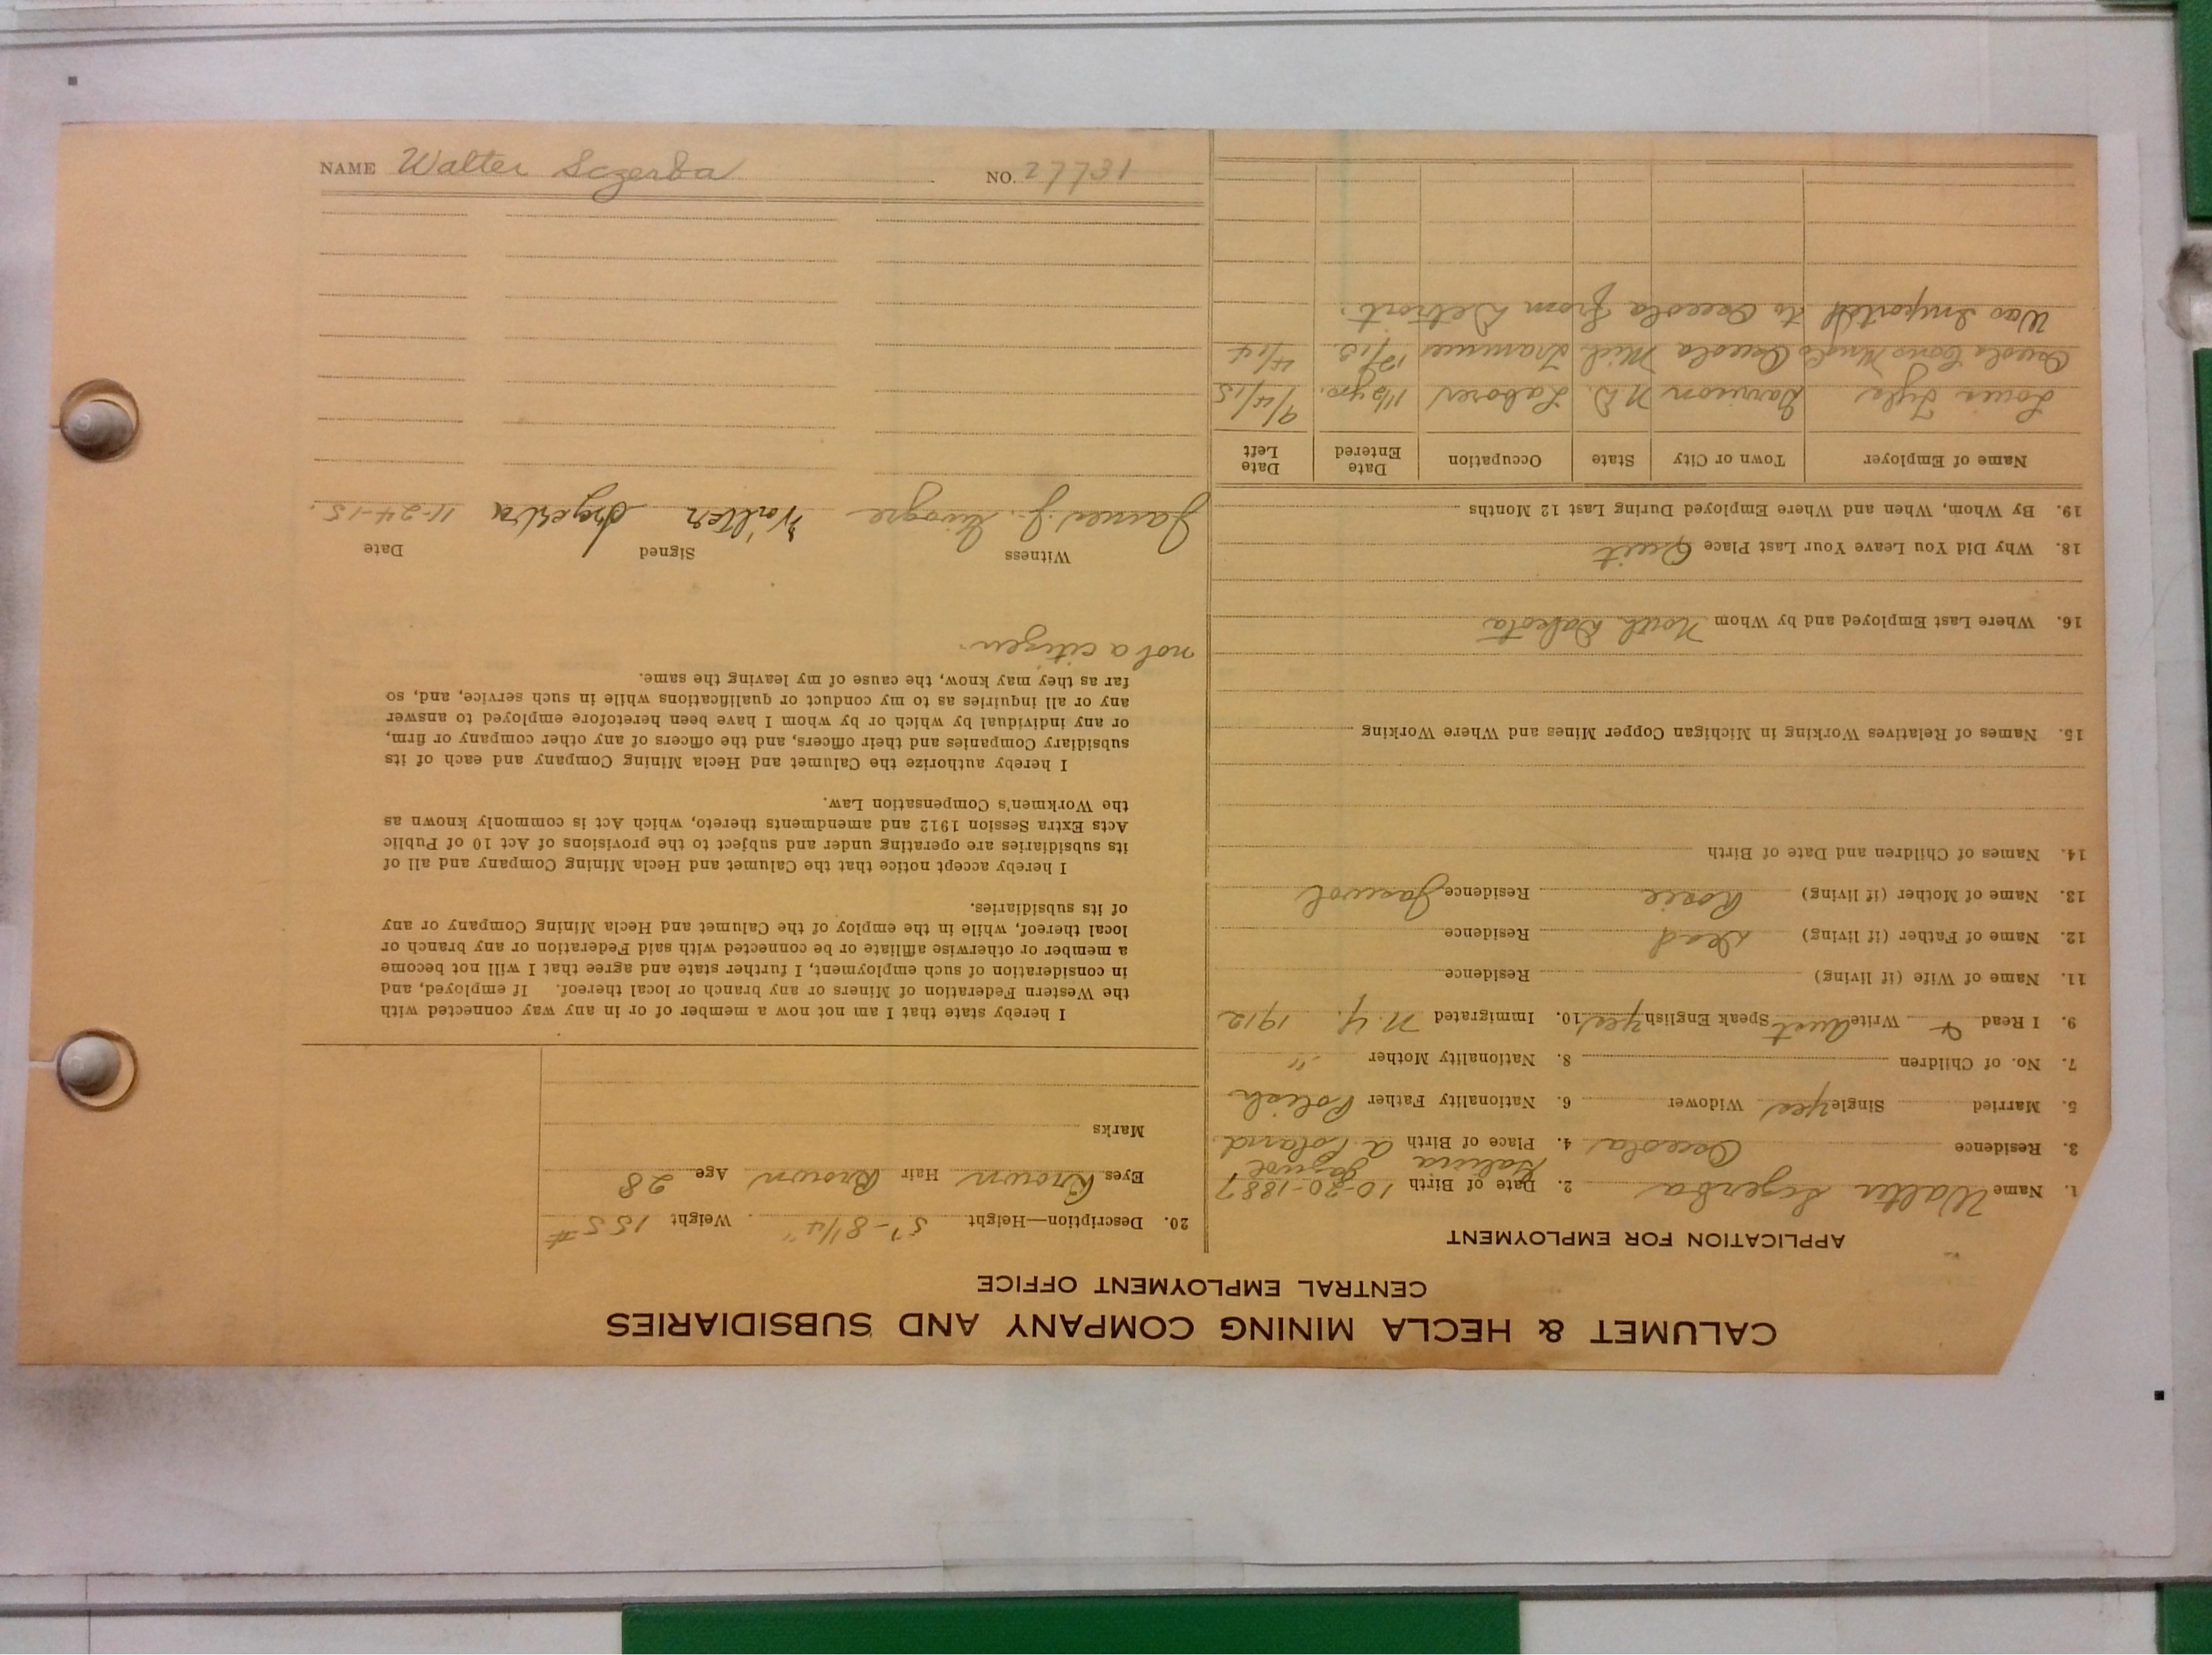 CALUMET & HECLA MINING COMPANY AND SUBSIDIARIES
CENTRAL EMPLOYMENT OFFICE
APPLICATION FOR EMPLOYMENT
1. Name Walter Sczerba 2. Date of Birth 10-20-1887
Galicia
3. Residence Osceola 4. Place of Birth A. Poland
5. Married Single yes Widower 6. Nationality Father Polish
7. No. of Children 8. Nationality Mother "
9. I Read & Write Aust Speak English yes 10. Immigrated N.Y. 1912
11. Name of Wife (if living) Residence
12. Name of Father (if living) Dead Residence
13. Name of Mother (if living) Rosie Residence
14. Names of Children and Date of Birth
15. Names of Relatives Working in Michigan Copper Mines and Where Working
16. Where Last Employed and by Whom North Dakota
18. Why Did You Leave Your Last Place Quit
19. By Whom, When and Where Employed During Last 12 Months
Name of Employer Town or City State Occupation Date Entered Date Left
Louis N.D. Laborer 1 1/2 yrs. 9/4/15
Osceola Cons Mng Co Osceola Mich Trammer 12/13 4/14
Was Imported to Osceola from Detroit.
20. Description—Height 5'-8 1/4" Weight 155#
Eyes Brown Hair Brown Age 28
Marks
I hereby state that I am not now a member of or in any way connected with
the Western Federation of Miners or any branch or local thereof. If employed, and
in consideration of such employment, I further state and agree that I will not become
a member or otherwise affiliate or be connected with said Federation or any branch or
local thereof, while in the employ of the Calumet and Hecla Mining Company or any
of its subsidiaries.
I hereby accept notice that the Calumet and Hecla Mining Company and all of
its subsidiaries are operating under and subject to the provisions of Act 10 of Public
Acts Extra Session 1912 and amendments thereto, which Act is commonly known as
the Workmen's Compensation Law.
I hereby authorize the Calumet and Hecla Mining Company and each of its
subsidiary Companies and their officers, and the officers of any other company or firm,
or any individual by which or by whom I have been heretofore employed to answer
any or all inquiries as to my conduct or qualifications while in such service, and, so
far as they may know, the cause of my leaving the same.
not a citizen.
Witness Signed Date
James J. Walter 11-24-15.
NAME Walter Sczerba NO. 27731